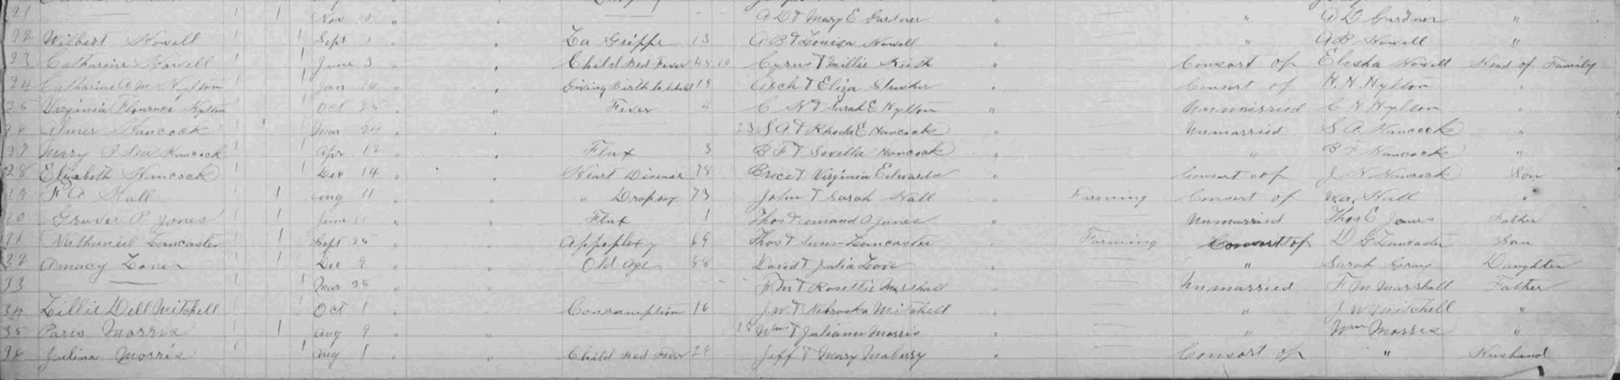 21 Nov " A D & Mary E Gardner " " A D Gardner "
22 Wilbert Howell Sept 1 " La Grippe 13 A B & Louisa Howell " " A B Howell "
23 Catharine Howell June 3 " Child Bed Fever 45 10 Cyrus & Millie " Consort of Elisha Howell Head of Family
24 Catharine Hylton Jan " Giving Birth to child 19 & Eliza Slusher " Consort of H. H. Hylton "
25 Virginia Florence Hylton Oct 25 " Fever 4 C N & Sarah E Hylton " Unmarried C N Hylton "
26 Hancock Mar 24 " 23 S A & Rhoda E Hancock " Unmarried S A Hancock "
27 Mary Hancock Apr 12 " Flux 3 B F & Sevilla Hancock " " B F Hancock "
28 Elizabeth Hancock Dec 14 " Heart Disease 75 Brice & Virginia Edwards " Consort of J Hancock Son
29 Hall Aug 11 " " Dropsy 73 John & Sarah Hall Farming Consort of Hall "
30 Grover P Jones June " Flux 1 Thos & A Jones " Unmarried Thos E Jones Father
31 Nathaniel Lancaster Sept 25 " Appoplexy 69 Thos & Lancaster Farming Consort of D G Lancaster Son
32 Amacy Love Dec 9 " Old Age 88 David & Julia Love " " Sarah Gray Daughter
33 Mar 28 " F M & Rosettie Marshall Unmarried F M Marshall Father
34 Lillie Dell Mitchell Oct 1 " Consumption 16 J W & Nebraska Mitchell " " J W Mitchell "
35 Paris Morris Aug 9 " Wm & Juliana Morris " " Wm Morris "
36 Julina Morris Aug 1 " Child Bed Fever 29 Jeff & Mary Maberry " Consort of " Husband